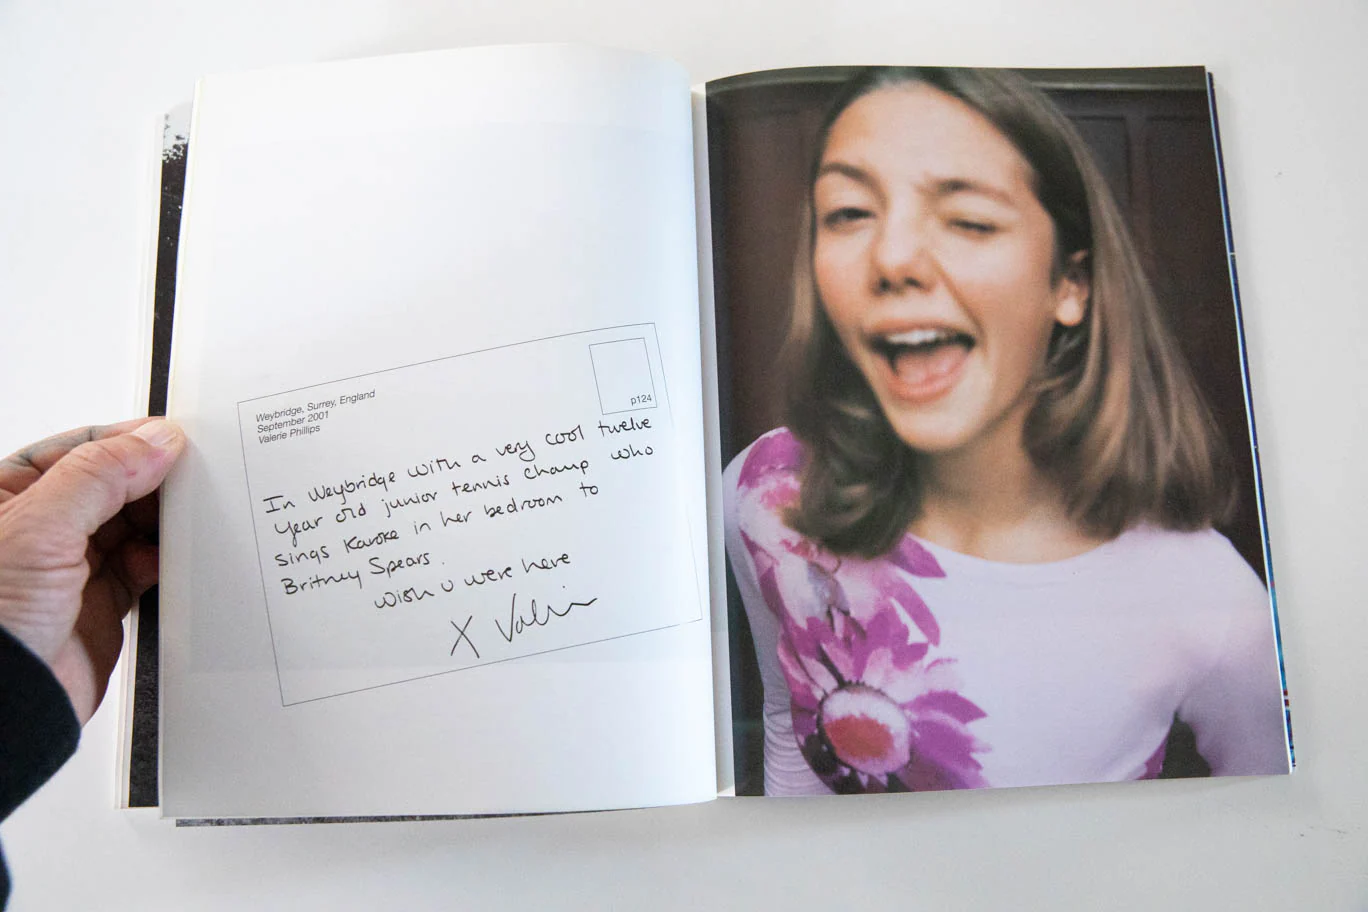 Weybridge, Surrey, England
September 2001
Valerie Phillips
p124
In Weybridge with a very cool twelve
year old junior tennis champ who
sings Karoke in her bedroom to
Britney Spears.
wish u were here
X Valerie